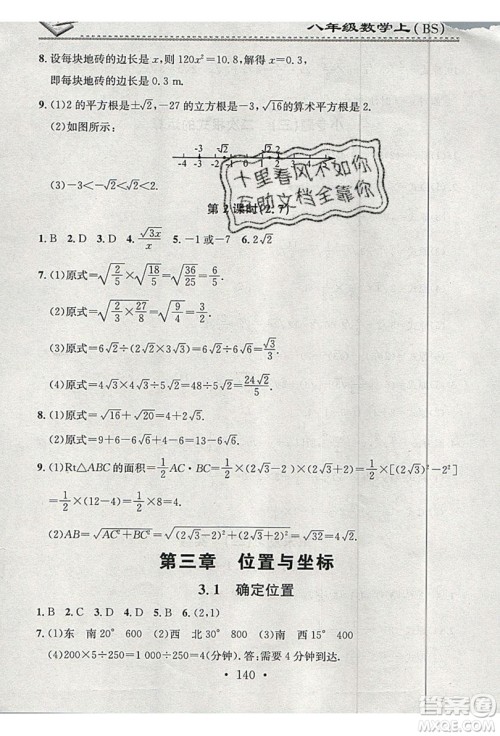 八年级数学上(BS)
8. 设每块地砖的边长是x,则120x²=10.8,解得x=0.3,
即每块地砖的边长是0.3 m.
9. (1)2的平方根是±√2,-27的立方根是-3,√16的算术平方根是2.
(2)如图所示:
-3 -√2 √2 2
-4 -3 -2 -1 0 1 2 3 4
(3)-3<-√2<√2<2
十里春风不如你
互助文档全靠你
第2课时(2.7)
1. B 2. D 3. D 4. √3x/x 5. -1或-7 6. 2√2
7. (1)原式=√(2/5)×√(18/5)=√(36/25)=6/5.
(2)原式=√(2/5)×√(5/9)=√(2/9)=√2/3.
(3)原式=6√2÷(2√3-√3)=6√2÷√3=2√6.
(4)原式=4×4√3×√3÷2√2=48÷2√2=12√2.
8. (1)原式=√16+√25-1=4+5-1=8.
(2)原式=9+6-6√6+6√6=15.
9. (1)Rt△ABC的面积=1/2AC·BC=1/2×(2√3-2)×(2√3+2)=1/2×[(2√3)²-2²]
=1/2×(12-4)=1/2×8=4.
(2)AB=√(AC²+BC²)=√((2√3-2)²+(2√3+2)²)=√32=4√2.
第三章 位置与坐标
3.1 确定位置
1. B 2. C 3. D 4. D 5. B 6. (2,1)
7. (1)东 南20° 600 (2)西 北30° 400 (3)北 西50° 800
(4)(200×5-200)÷200=4(分钟). 答:需要4分钟到达.
· 140 ·
答案圈
MXQE.COM